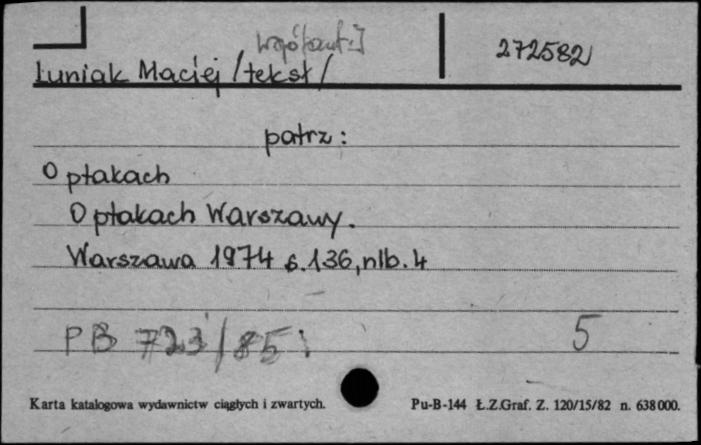 [współaut.]
272582
Łuniak Maciej /tekst/
patrz:
O ptakach
O ptakach Warszawy.
Warszawa 1974 s.136, nlb. 4
PB 723/85
5
Karta katalogowa wydawnictw ciągłych i zwartych.
Pu-B-144 Ł.Z.Graf. Z. 120/15/82 n. 638000.